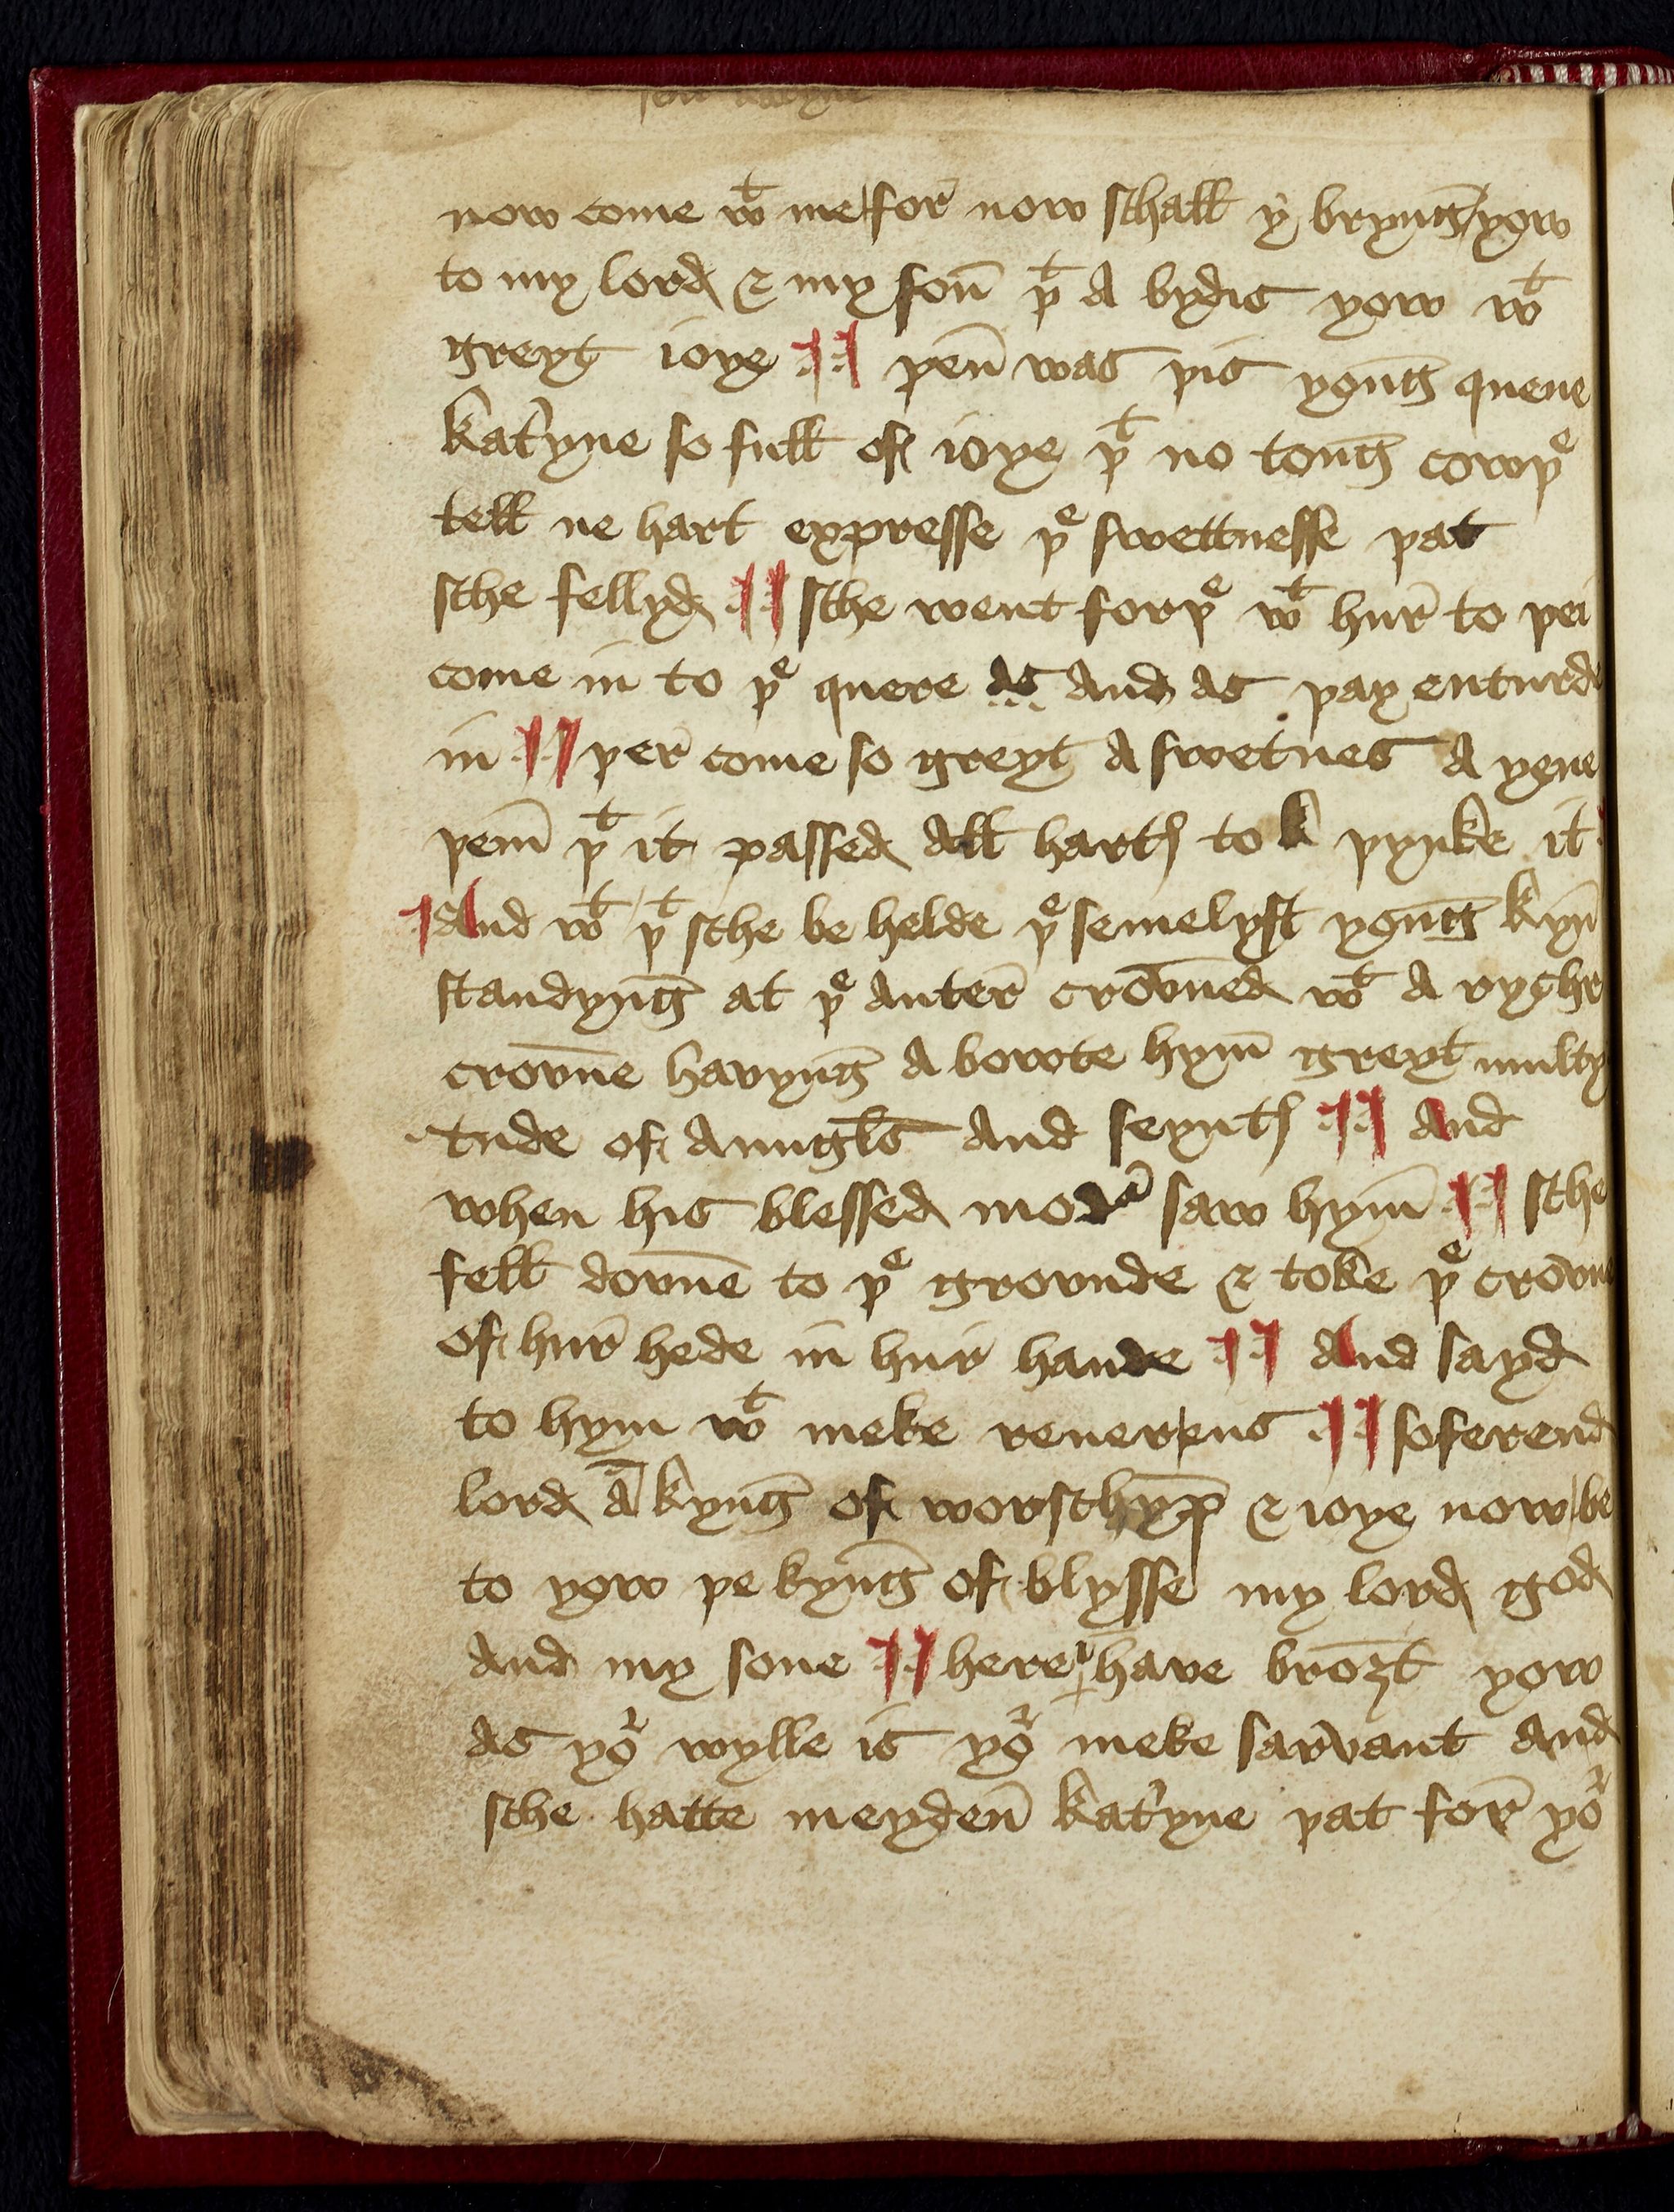 now come wᵗ me for now schall ẏ bryng yow
to my lord & my son þᵗ A bydis yow wᵗ
greyt ioye þen was þis yong quene
kat'yne so full of ioye þᵗ no tong cowþᵉ
tell ne hart expresse þᵉ swettnesse þat
sche fellyd sche went forþᵉ wᵗ hur to þei
come in to þᵉ quere as And as þay enturde
in þer come so greyt A swetnes A yene
þem þᵗ it passed All hartꝭ to k þynke it
And wᵗ þᵗ sche be helde þᵉ semelyst yong kyn̄
standyng at þᵉ Auter crowned wᵗ A ryche
crowne havyng A bowte hym greyt multy
tude of Anngls And seyntꝭ And
when his blessed modʳ saw hym sche
fell downe to þᵉ grownde & toke þᵉ crowne
of hur hede in hur hande And sayd
to hym wᵗ meke renerens soferend
lord A kyng of worschyp & ioye now be
to yow þe kyng of blysse my lord god
And my sone here I have broȝt yow
As yoʳ wylle is yoʳ meke sarvant And
sche hatte meyden kat'yne þat for yoʳ